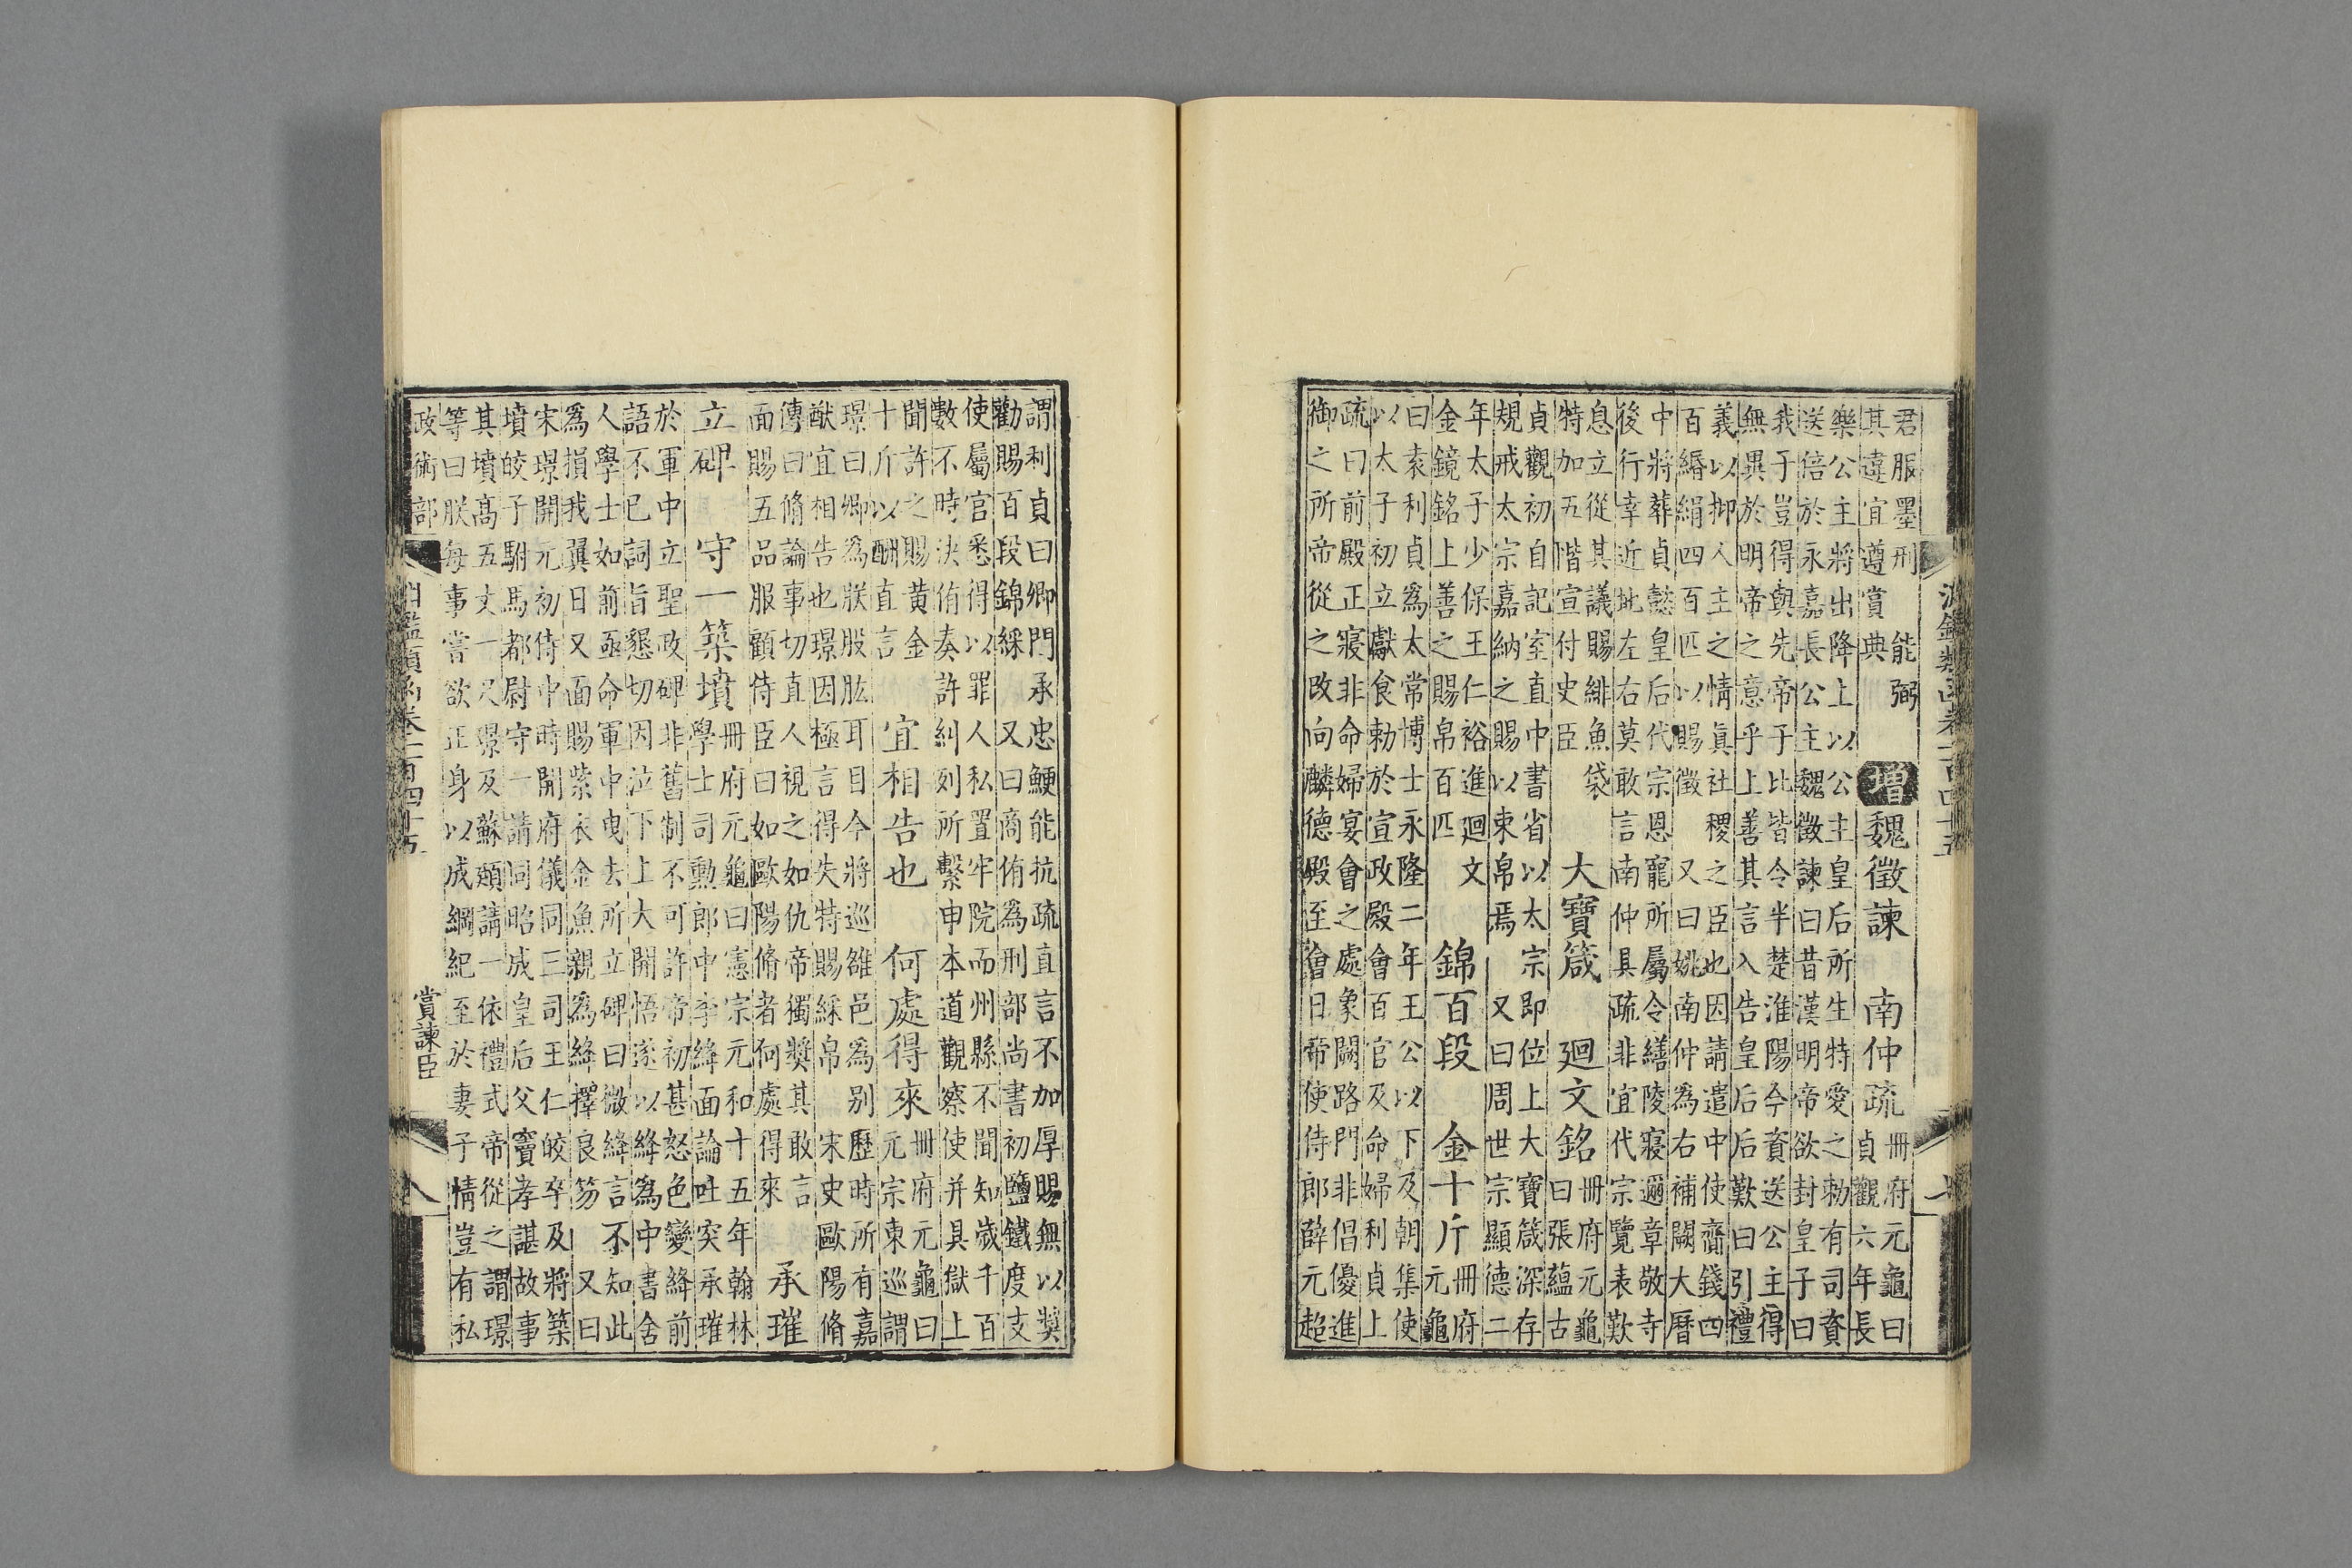 淵鑑類函卷二百四十五
七
君服墨刑 能弼
其違宜遵賞典
增魏徵諫 南仲疏
冊府元龜曰
貞觀六年長
樂公主將出降上以公主皇后所生特愛之勅有司資
送倍於永嘉長公主魏徵諫曰昔漢明帝欲封皇子曰
我子豈得與先帝子比皆令半楚淮陽今資送公主得
無異於明帝之意乎上善其言入告皇后后歎曰引禮
義以抑人主之情真社稷之臣也因請遣中使齎錢四
百緡絹四百匹以賜徵 又曰姚南仲為右補闕大曆
中將葬貞懿皇后代宗恩寵所屬令繕陵寢邇章敬寺
後行幸近地左右莫敢言南仲具疏非宜代宗覽表歎
息立從其議賜緋魚袋
特加五階宣付史臣
大寶箴 廻文銘
冊府元龜
曰張蘊古
貞觀初自記室直中書省以太宗即位上大寶箴深存
規戒太宗嘉納之賜以束帛焉 又曰周世宗顯德二
年太子少保王仁裕進廻文
金鏡銘上善之賜帛百匹
錦百段 金十斤
冊府
元龜
曰袁利貞為太常博士永隆二年王公以下及朝集使
以太子初立獻食勅於宣政殿會百官及命婦利貞上
疏曰前殿正寢非命婦宴會之處象闕路門非倡優進
御之所帝從之改向麟德殿至會日帝使侍郎薛元超
謂利貞曰卿門承忠鯁能抗疏直言不加厚賜無以奬
勸賜百段錦綵 又曰商侑為刑部尚書初鹽鐵度支
使屬官悉得以罪人私置牢院而州縣不聞知歲千百
數不時決侑奏許糾列所繫申本道觀察使并具獄上
聞許之賜黄金
十斤以酬直言
宜相告也 何處得來
冊府元龜曰
元宗東巡謂
璟曰卿為朕股肱耳目今將巡雒邑為别歷時所有嘉
猷宜相告也璟因極言得失特賜綵帛 宋史歐陽脩
傳曰脩論事切直人視之如仇帝獨奬其敢言
面賜五品服顧侍臣曰如歐陽脩者何處得來
承璀
立碑 守一築墳
冊府元龜曰憲宗元和十五年翰林
學士司勳郎中李絳面論吐突承璀
於軍中立聖政碑非舊制不可許帝初甚怒色變絳前
語不已詞旨懇切因泣下上大開悟遂以絳為中書舍
人學士如前亟命軍中曳去所立碑曰微絳言不知此
為損我翼日又面賜紫衣金魚親為絳擇良笏 又曰
宋璟開元初侍中時開府儀同三司王仁皎卒及將築
墳皎子駙馬都尉守一請同昭成皇后父竇孝諶故事
其墳高五丈一尺璟及蘇頲請一依禮式帝從之謂璟
等曰朕每事嘗欲正身以成綱紀至於妻子情豈有私
政術部
淵鑑類函卷二百四十五
賞諫臣
八